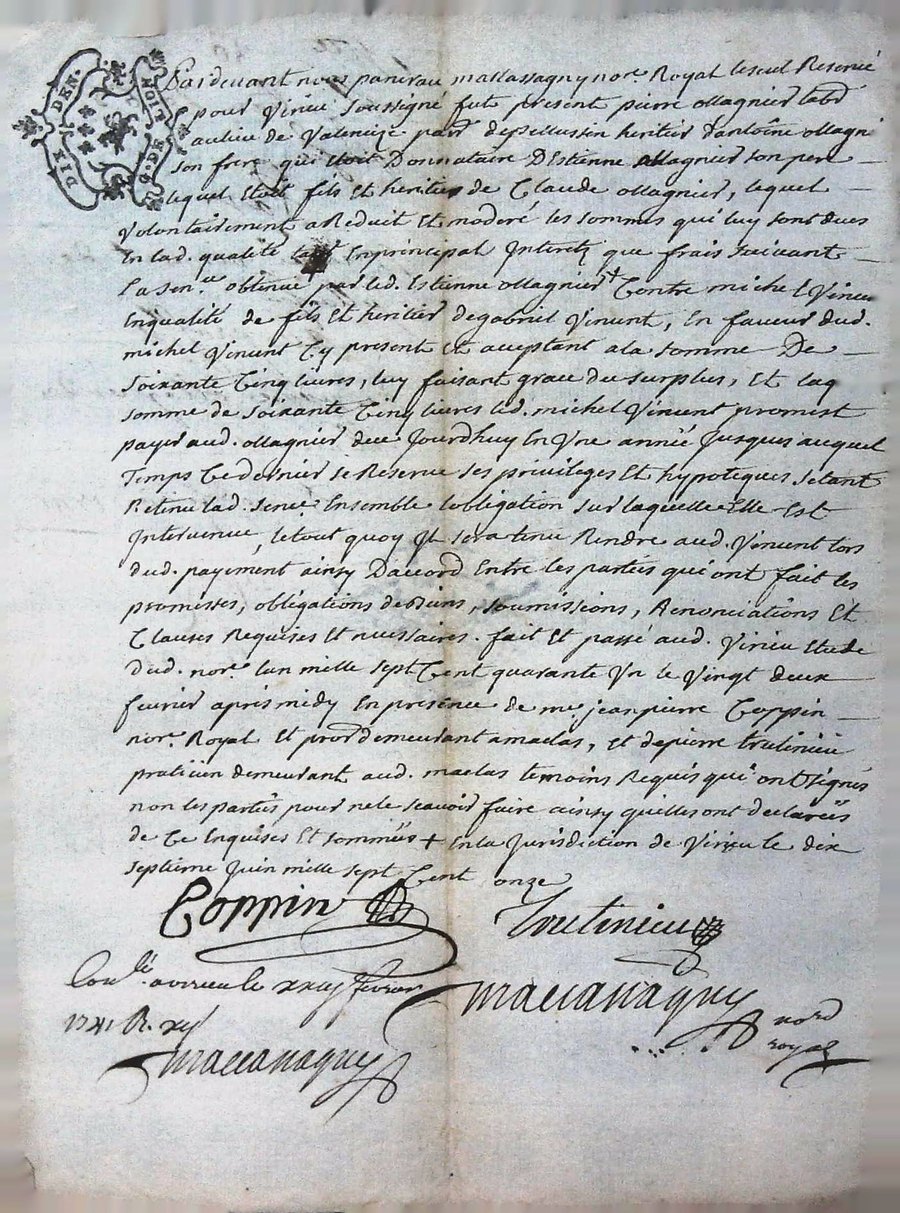 DIX DEN. NOIT G.DE
Pardevant nous pancrau mattassagny nore. Royal le seul Reservé
pour Virieu soussigné fut present pierre ollagnier labr
au lieu de Valencize parr de pellussin heritier d'antoine ollagni
son frere qui étoit Donnataire D'Estienne ollagnier son pere
lequel étoit fils Et heritier de Claude ollagnier, lequel
Volontairement a Reduit Et moderé les sommes qui luy sont dues
En lad. qualité tant En principal Interetz que frais suivant
la sence obtenue par led. Estienne ollagnier + Contre michel Vincent
Enqualité de fils Et heritier de gabriel Vincent, En faveur dud.
michel Vincent Cy present Et acceptant a la somme De
soixante Cinq livres, luy faisant grace du surplus, Et laq
somme de soixante Cinq livres led. michel Vincent promest
payer aud. ollagnier dece Jourdhuy En Vne année Jusques auquel
Temps Ce dernier se Reserve ses privileges Et hypoteques setant
Retenu lad. sence Ensemble l'obligation sur laquelle Elle Est
Intervenue, le tout quoy Il sera tenu Rendre aud. Vincent lors
dud. payement ainsy D'accord Entre les parties qui ont fait les
promesses, obligations de Biens, soumissions, Renonciations Et
Clauses Requises Et necessaires. fait Et passé aud. Virieu Etude
dud. nore. lan mille sept Cent quarante Vn le Vingt deux
fevrier apris midy En presence de me jean pierre Coppin
nore. Royal Et procr demeurant a maclas, Et de pierre
praticien demeurant aud. maclas temoins Requis qui ont signés
non les parties pour ne le scavoir faire ainsy quelles ont declarées
de Ce Enquises Et sommées + En la Jurisdiction de Virieu le dix
septieme Juin mille sept Cent onze
Coppin
Conlé a virieu le xxij fevrier
1741 R. xij
nord
royal